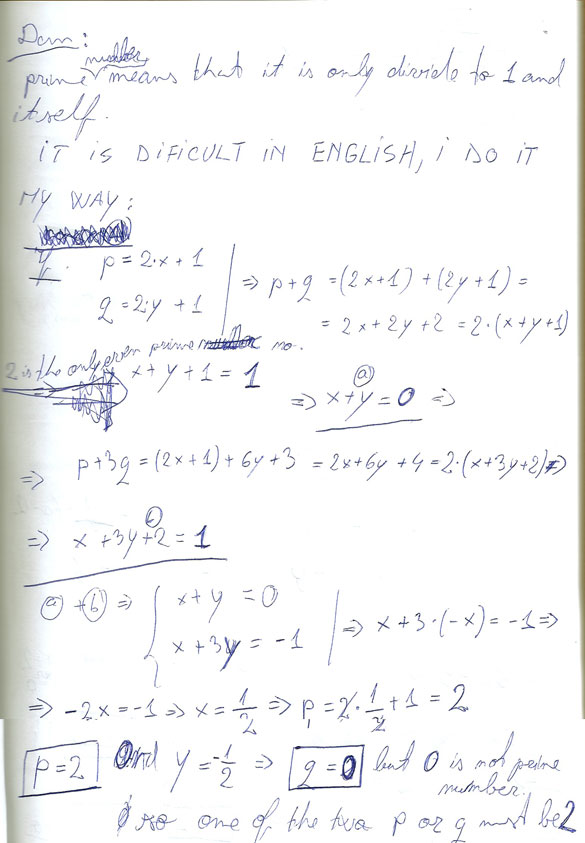 Dem:
number
prime means that it is only divide to 1 and
itself.
IT IS DIFICULT IN ENGLISH, I DO IT
MY WAY:
I. p = 2·x + 1
q = 2·y + 1
⇒ p+q = (2x+1) + (2y+1) =
= 2x + 2y + 2 = 2·(x+y+1)
2 is the only even prime no.
x + y + 1 = 1
⇒ x+y = 0 ⇒
ⓐ
⇒ p+3q = (2x+1) + 6y + 3 = 2x + 6y + 4 = 2·(x+3y+2) ⇒
ⓑ
⇒ x + 3y + 2 = 1
ⓐ + ⓑ ⇒ { x + y = 0
x + 3y = -1
⇒ x + 3·(-x) = -1 ⇒
⇒ -2x = -1 ⇒ x = 1/2 ⇒ p = 2·1/2 + 1 = 2
p = 2 and y = -1/2 ⇒ q = 0 but 0 is not prime
number.
so one of the two p or q must be 2